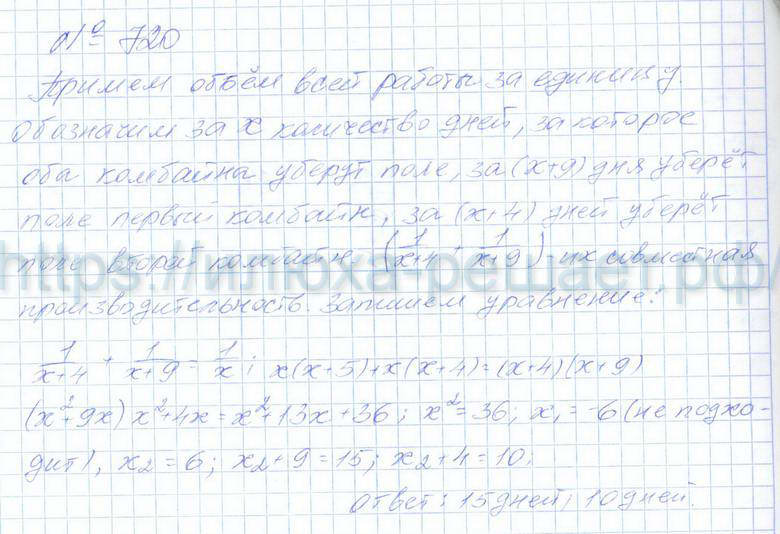 № 720
Примем объём всей работы за единицу.
Обозначим за x количество дней, за которое
оба комбайна уберут поле, за (x+9) дня уберёт
поле первый комбайн, за (x+4) дней уберёт
поле второй комбайн (1/(x+4) + 1/(x+9)) - их совместная
https://илюха-решает.рф/
производительность. Запишем уравнение:
1/(x+4) + 1/(x+9) = 1/x; x(x+5)+x(x+4)=(x+4)(x+9)
(x²+9x) x²+4x=x²+13x+36; x²=36; x₁=-6 (не подхо-
дит), x₂=6; x₂+9=15; x₂+4=10;
Ответ: 15 дней; 10 дней.